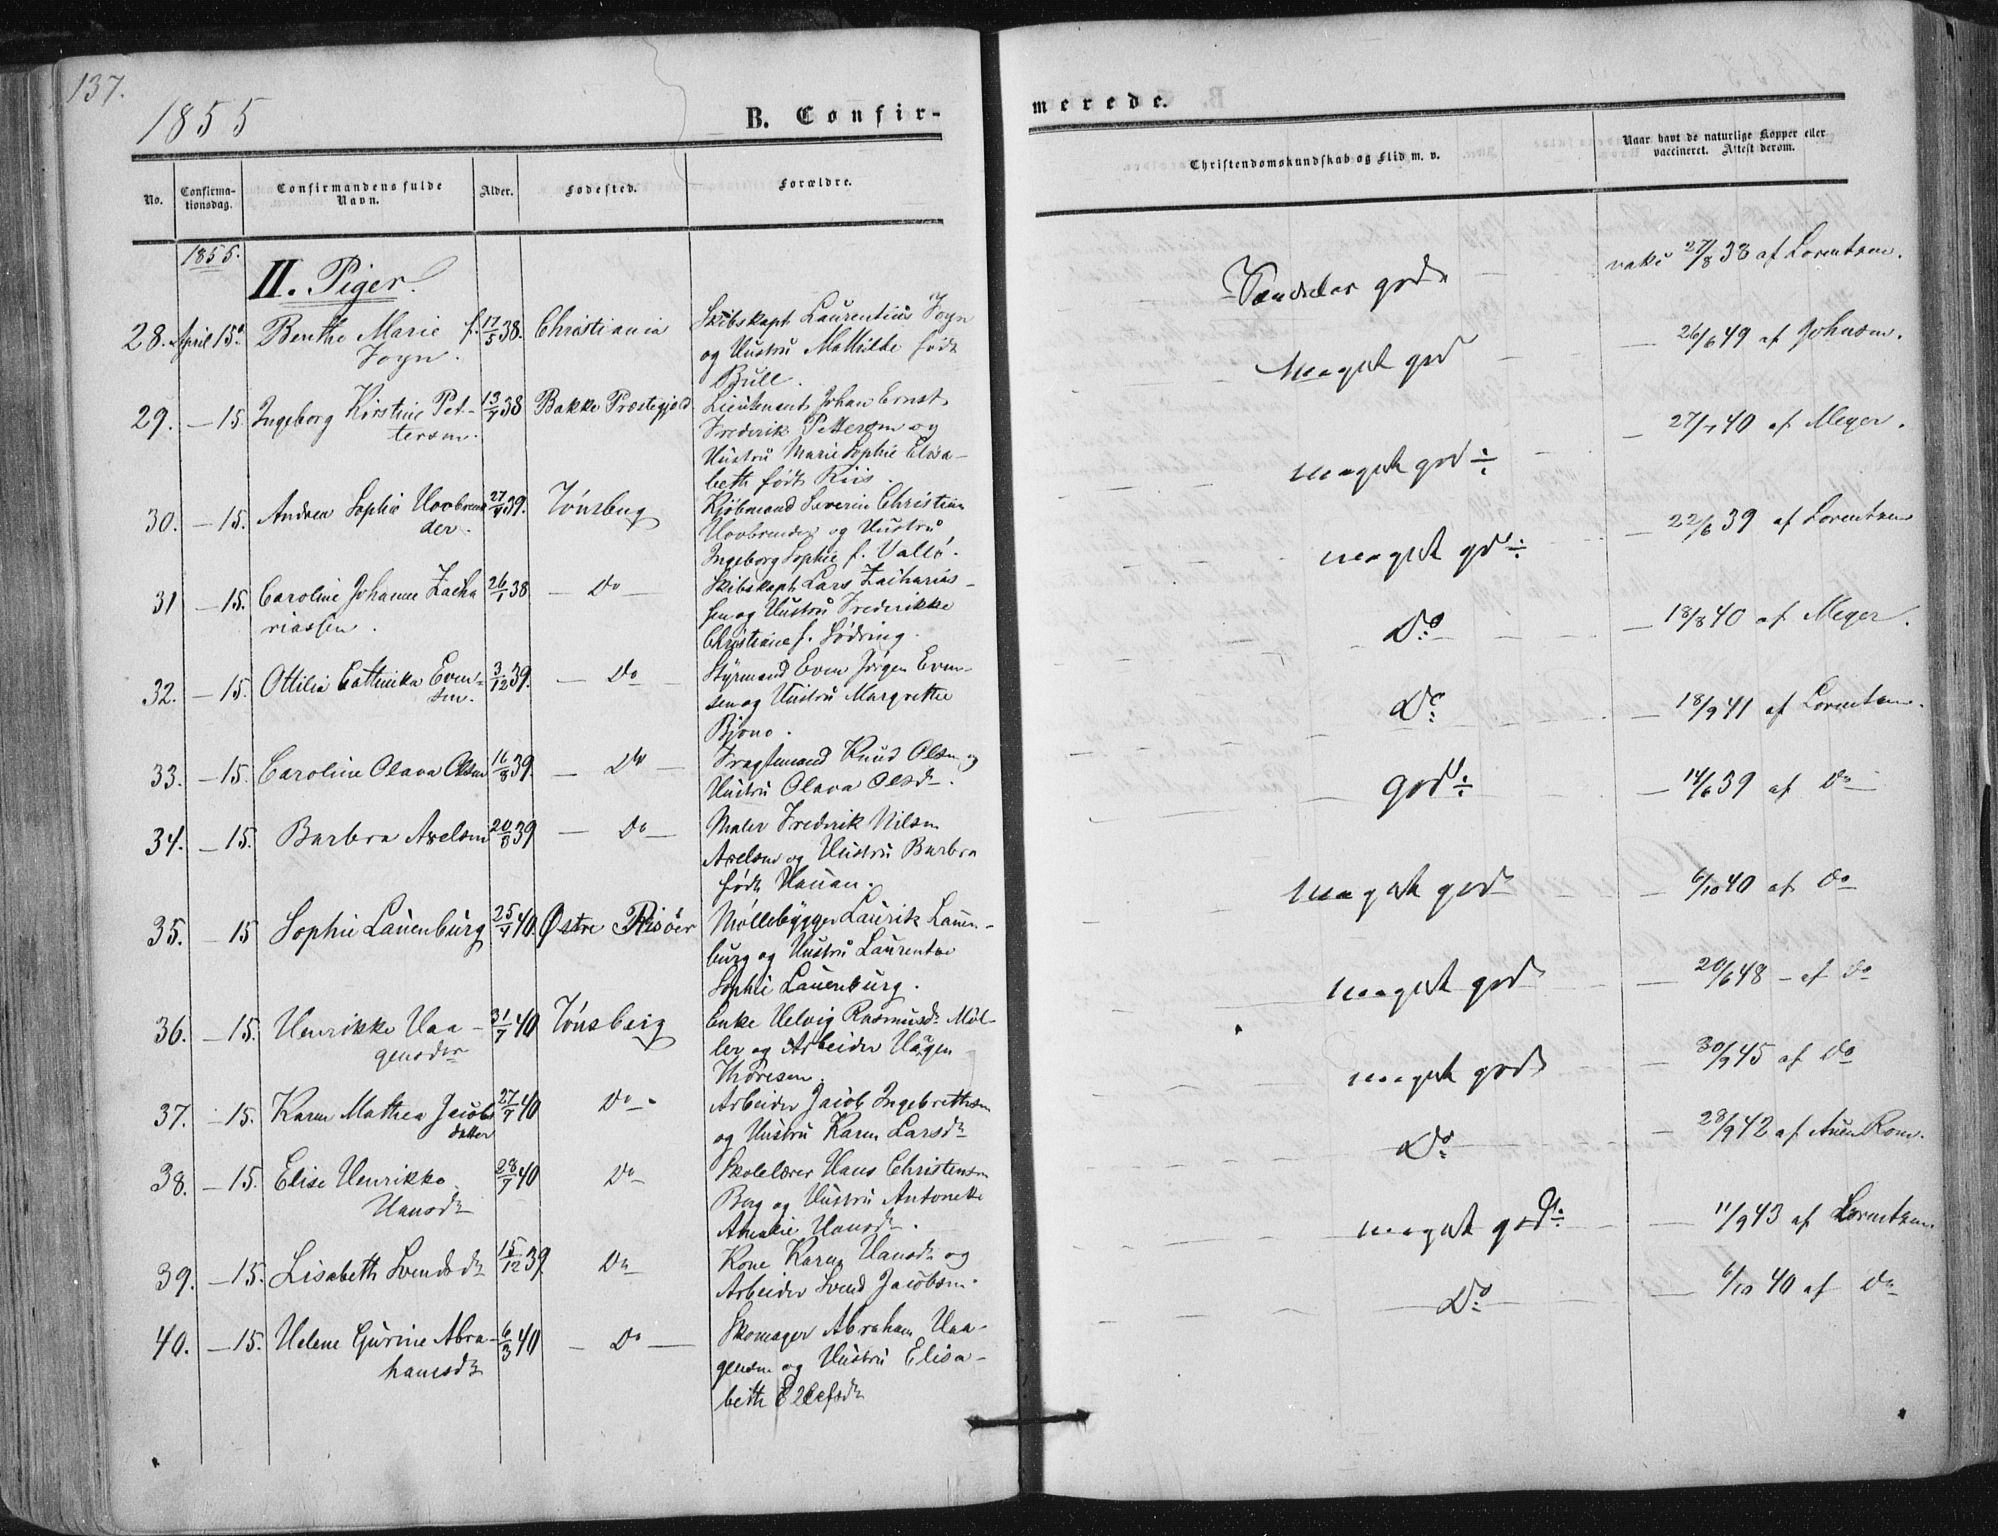 137.
1855
B. Confir-
merede.
No.
Confirma-
tionsdag.
Confirmandens fulde
Navn.
Alder.
Fødested.
Forældre.
Christendomskundskab og Flid m. v.
Naar havt de naturlige Kopper eller
vaccineret. Attest derom.
1855.
II. Piger.
28. April 15. Benthe Marie f. 17/5 38. Christiania Skibskapt Laurentius Foyn
Foyn. og Hustru Mathilde født
Bull.
Særdeles god vaks 27/8 38 af Lorentsen.
29. - 15. Ingeborg Kirstine Pet- 13/7 38 Bakke Præstegjeld Lieutenant Johan Ernst
tersen. Frederik Pettersen og
Hustru Marie Sophie Elisa-
beth født Riis.
Meget god - 26/6 49 af Johnsen.
30. - 15. Andrea Sophie Hovbren 27/4 39. Tönsberg Kjöbmand Severin Christian
der. Hovbrender og Hustru
Ingeborg Sophie f. Vallö.
meget god ÷ - 27/7 40 af Meyer.
31 - 15. Caroline Johanne Zacha 26/1 38 - Do - Skibskapt Lars Zacharias-
riassen. sen og Hustru Frederikke
Christiane f. Södring.
meget gd ÷ 22/6 39 af Lorentsen
32. - 15. Ottilia Cathinka Even- 3/12 39. - Do Styrmand Even Jörgen Even-
sen. sen og Hustru Margrethe
Bjono.
Do - 18/8 40 af Meyer.
33. - 15. Caroline Olava Olsen 16/8 39. - Do - Fragtemand Knud Olsen og
Hustru Olava Olsd.
Do - 18/9 41 af Lorentsen.
34. - 15. Barbra Axelsen 20/8 39 - Do - Maler Frederik Nilsen
Axelsen og Hustru Barbra
født Hauan.
god ÷ - 14/6 39 af Do
35. - 15 Sophie Lauenburg 25/4 40. Østre Risöer Möllebygger Laurik Lauen-
burg og Hustru Laurentse
Sophie Lauenburg.
Meget god - 6/10 40 af Do
36. - 15. Henrikke Haa- 31/7 40 Tönsberg Enke Helvig Rasmusd. Möl-
gensdr ler og Arbeider Hagen
Thoresen.
meget god - 20/6 48 - af Do
37. - 15. Karen Mathea Jacobs 27/7 40 Do - Arbeider Jacob Ingebrethsen
datter og Hustru Karen Larsd.
meget god - 30/9 45 af Do
38. - 15. Elise Henrikke 28/7 40 Do Skolelærer Hans Christensen
Hansd. Borg og Hustru Antonette
Amalie Hansd.
Do - 28/9 42 af
39. - 15. Lisabeth Svendsd. 15/12 39. Do Kone Karen Hansd. og
Arbeider Svend Jacobsen.
meget god ÷ - 11/9 43 af Lorentsen
40. - 15. Helene Gurine Abra- 6/3 40 - Do - Skomager Abraham Haa-
hamsd. gensen og Hustru Elisa-
beth Ellefsd.
Do 6/10 40 af Do